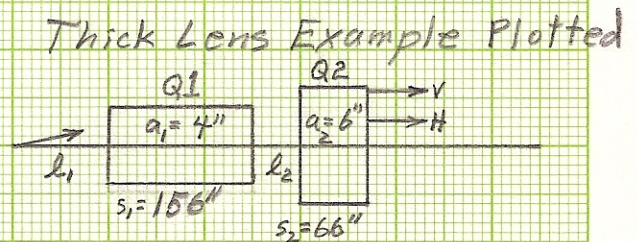 Thick Lens Example Plotted
Q1
Q2
V
a₁= 4"
a₂= 6"
H
l₁
l₂
s₁= 156"
s₂= 66"